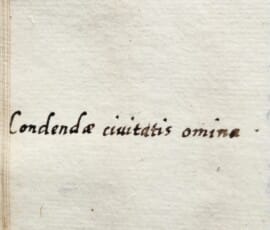 Condendæ ciuitatis omina